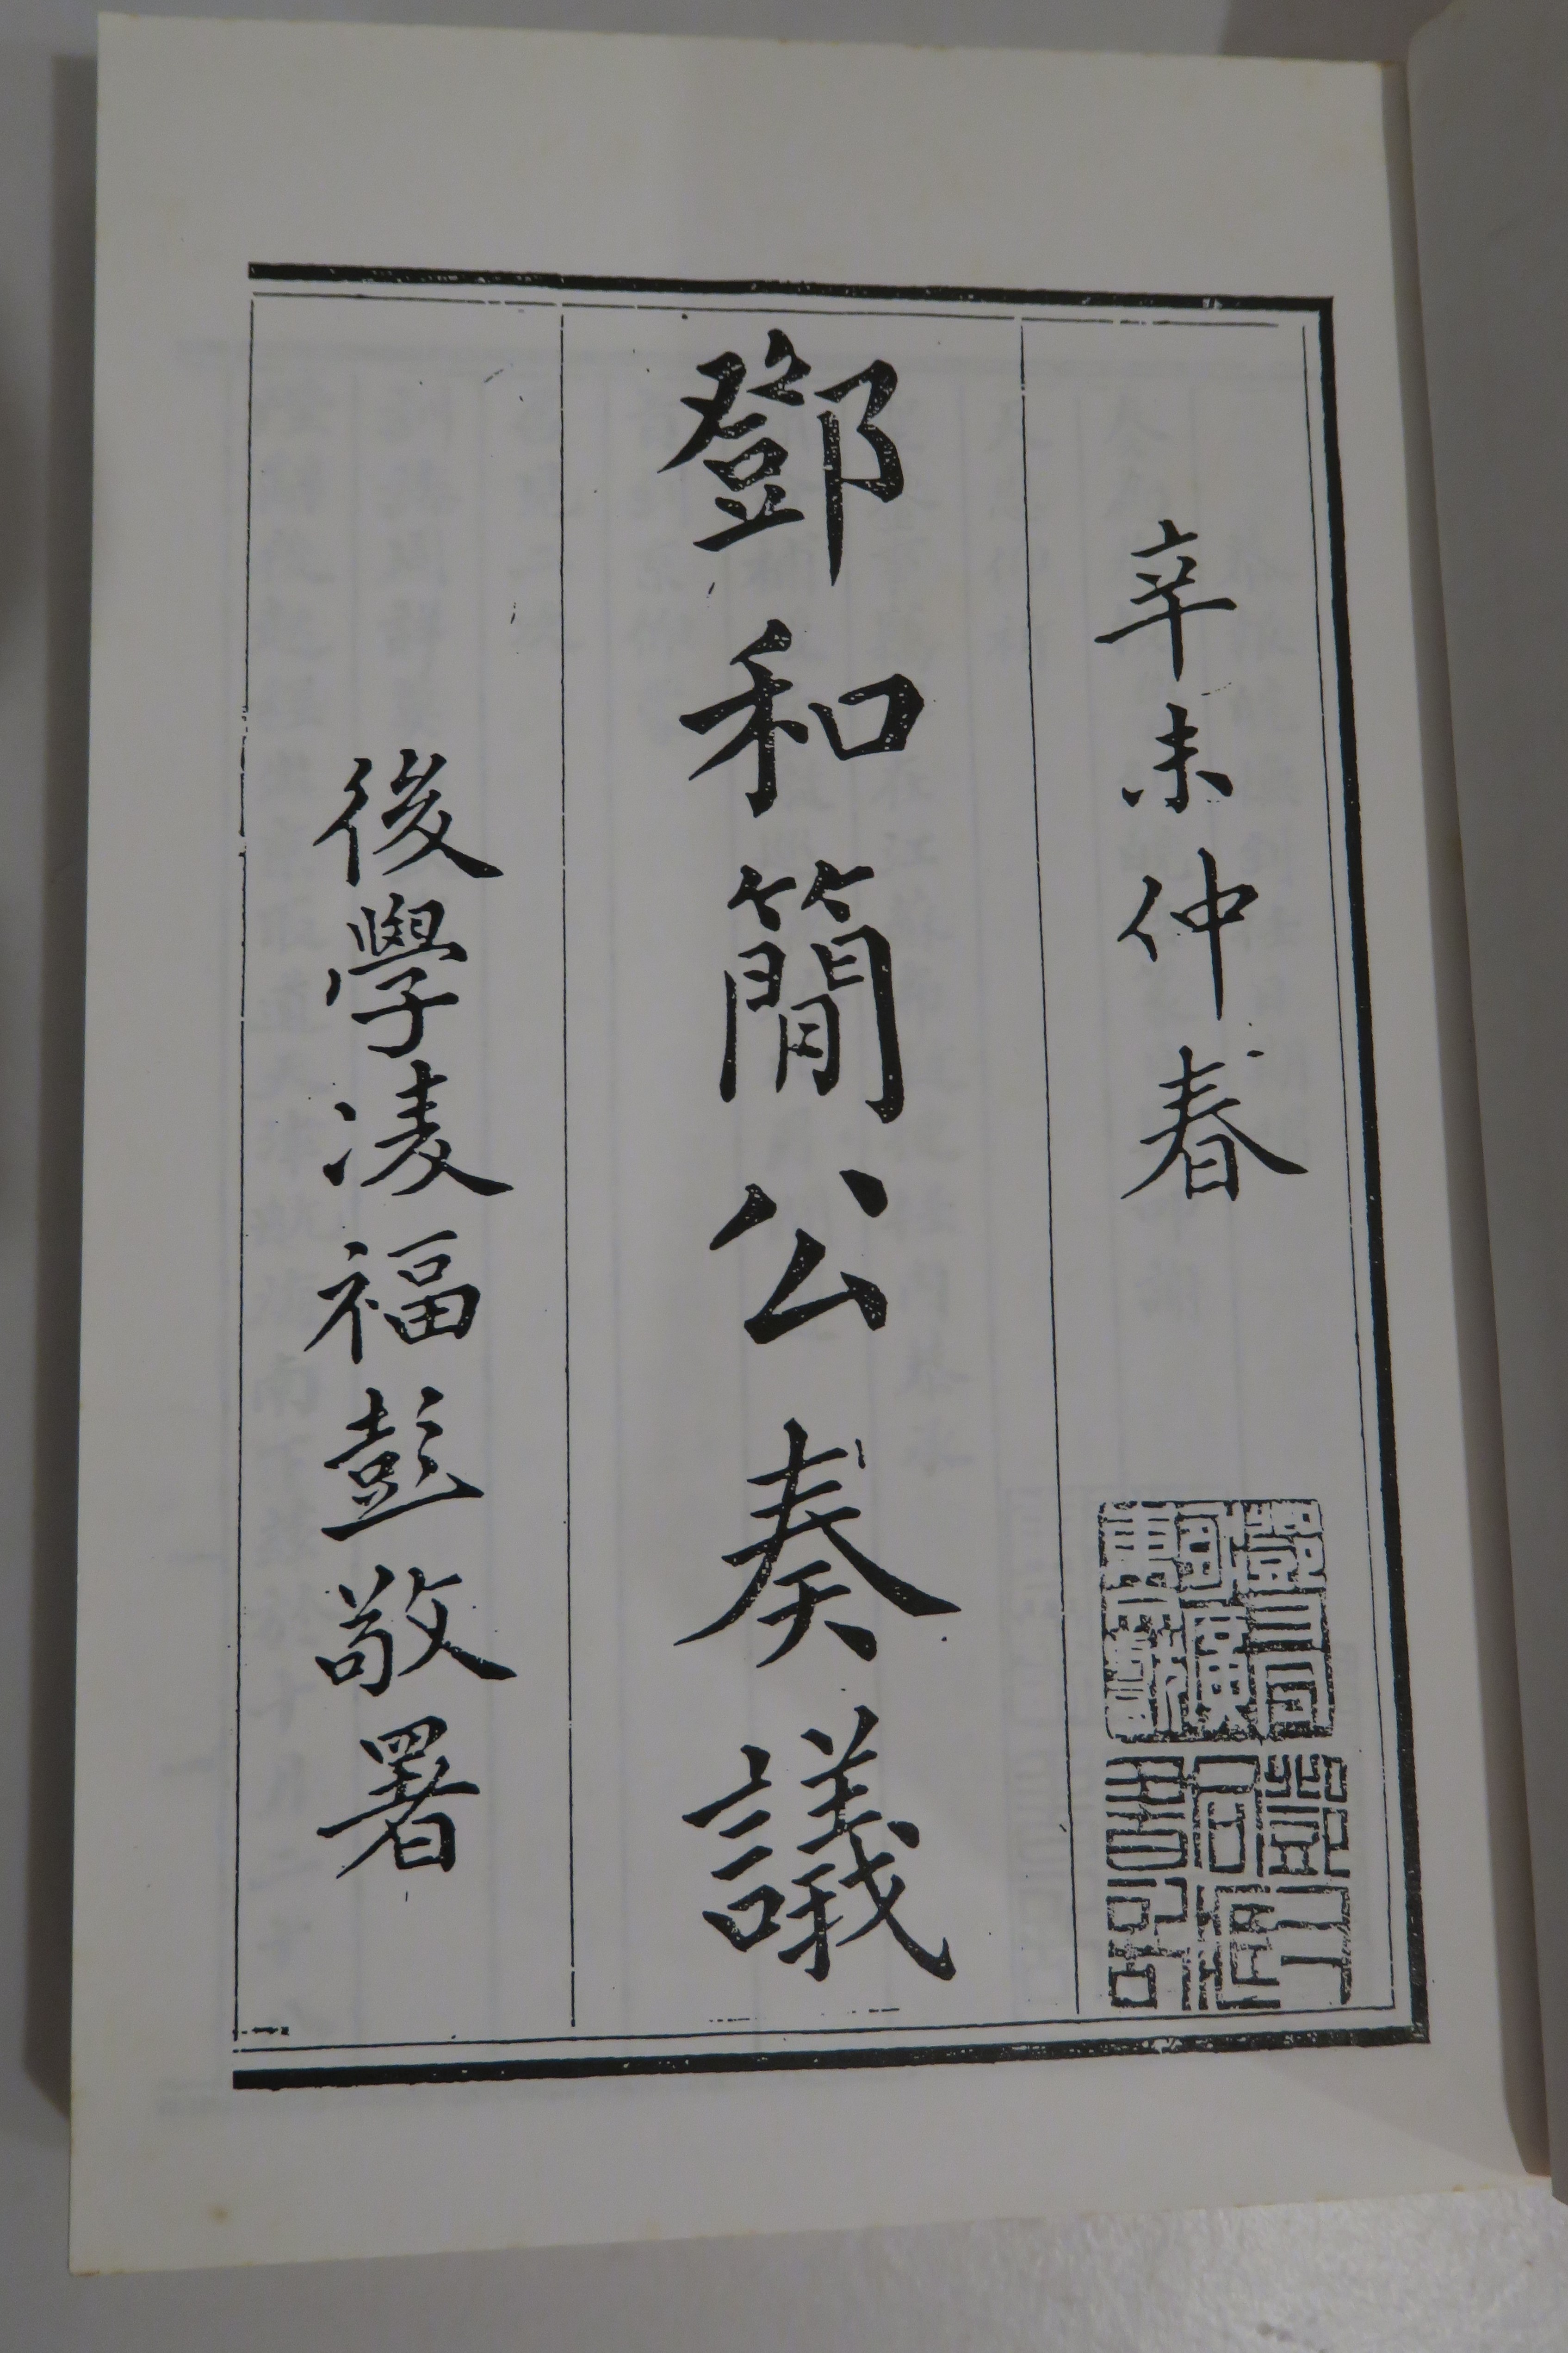 辛未仲春
鄧和簡公奏議
後學凌福彭敬署